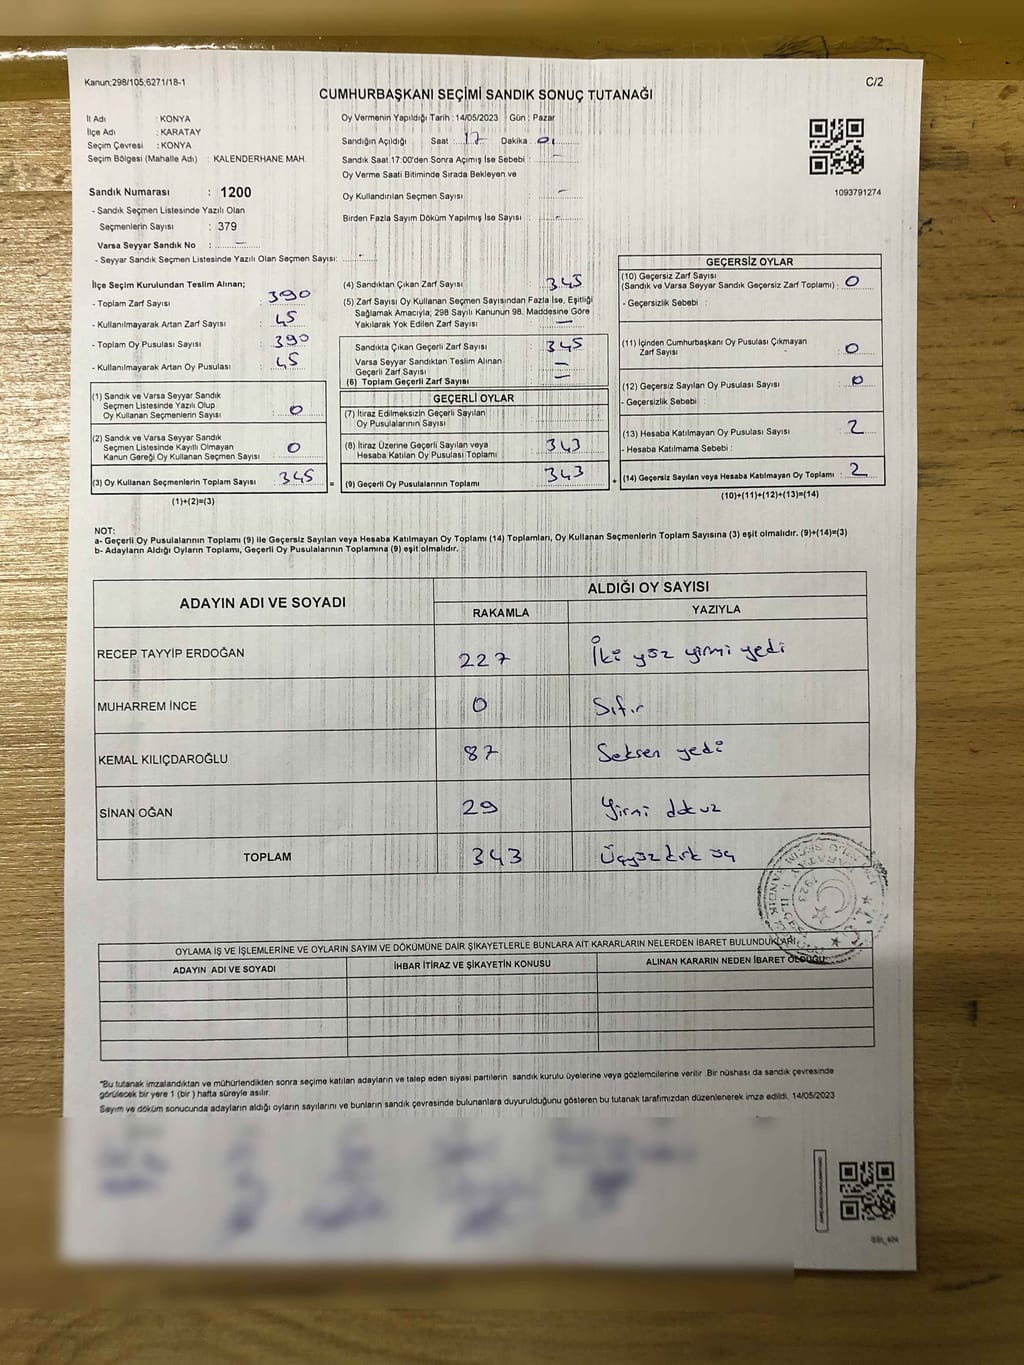 Kanun;298/105;6271/18-1
C/2
CUMHURBAŞKANI SEÇİMİ SANDIK SONUÇ TUTANAĞI
İl Adı : KONYA
İlçe Adı : KARATAY
Seçim Çevresi : KONYA
Seçim Bölgesi (Mahalle Adı) : KALENDERHANE MAH.
Sandık Numarası : 1200
- Sandık Seçmen Listesinde Yazılı Olan
Seçmenlerin Sayısı : 379
Varsa Seyyar Sandık No : -
- Seyyar Sandık Seçmen Listesinde Yazılı Olan Seçmen Sayısı: -
Oy Vermenin Yapıldığı Tarih : 14/05/2023 Gün : Pazar
Sandığın Açıldığı Saat : 17 Dakika : 01
Sandık Saat 17:00'den Sonra Açımış İse Sebebi : -
Oy Verme Saati Bitiminde Sırada Bekleyen ve
Oy Kullandırılan Seçmen Sayısı : -
Birden Fazla Sayım Döküm Yapılmış İse Sayısı : -
1093791274
İlçe Seçim Kurulundan Teslim Alınan;
- Toplam Zarf Sayısı : 390
- Kullanılmayarak Artan Zarf Sayısı : 45
- Toplam Oy Pusulası Sayısı : 390
- Kullanılmayarak Artan Oy Pusulası : 45
(1) Sandık ve Varsa Seyyar Sandık
Seçmen Listesinde Yazılı Olup
Oy Kullanan Seçmenlerin Sayısı : 0
(2) Sandık ve Varsa Seyyar Sandık
Seçmen Listesinde Kayıtlı Olmayan
Kanun Gereği Oy Kullanan Seçmen Sayısı : 0
(3) Oy Kullanan Seçmenlerin Toplam Sayısı : 345
(1)+(2)=(3)
=
(4) Sandıktan Çıkan Zarf Sayısı : 345
(5) Zarf Sayısı Oy Kullanan Seçmen Sayısından Fazla İse, Eşitliği
Sağlamak Amacıyla; 298 Sayılı Kanunun 98. Maddesine Göre
Yakılarak Yok Edilen Zarf Sayısı : -
Sandıkta Çıkan Geçerli Zarf Sayısı : 345
Varsa Seyyar Sandıktan Teslim Alınan
Geçerli Zarf Sayısı : -
(6) Toplam Geçerli Zarf Sayısı : -
GEÇERLİ OYLAR
(7) İtiraz Edilmeksizin Geçerli Sayılan
Oy Pusulalarının Sayısı :
(8) İtiraz Üzerine Geçerli Sayılan veya
Hesaba Katılan Oy Pusulası Toplamı : 343
(9) Geçerli Oy Pusulalarının Toplamı : 343
+
GEÇERSİZ OYLAR
(10) Geçersiz Zarf Sayısı
(Sandık ve Varsa Seyyar Sandık Geçersiz Zarf Toplamı) : 0
- Geçersizlik Sebebi :
(11) İçinden Cumhurbaşkanı Oy Pusulası Çıkmayan
Zarf Sayısı : 0
(12) Geçersiz Sayılan Oy Pusulası Sayısı : 0
- Geçersizlik Sebebi :
(13) Hesaba Katılmayan Oy Pusulası Sayısı : 2
- Hesaba Katılmama Sebebi :
(14) Geçersiz Sayılan veya Hesaba Katılmayan Oy Toplamı : 2
(10)+(11)+(12)+(13)=(14)
NOT:
a- Geçerli Oy Pusulalarının Toplamı (9) ile Geçersiz Sayılan veya Hesaba Katılmayan Oy Toplamı (14) Toplamları, Oy Kullanan Seçmenlerin Toplam Sayısına (3) eşit olmalıdır. (9)+(14)=(3)
b- Adayların Aldığı Oyların Toplamı, Geçerli Oy Pusulalarının Toplamına (9) eşit olmalıdır.
ADAYIN ADI VE SOYADI
ALDIĞI OY SAYISI
RAKAMLA YAZIYLA
RECEP TAYYİP ERDOĞAN 227 İki yüz yirmi yedi
MUHARREM İNCE 0 Sıfır
KEMAL KILIÇDAROĞLU 87 Seksen yedi
SİNAN OĞAN 29 Yirmi dokuz
TOPLAM 343 Üçyüz kırk üç
1923
OYLAMA İŞ VE İŞLEMLERİNE VE OYLARIN SAYIM VE DÖKÜMÜNE DAİR ŞİKAYETLERLE BUNLARA AİT KARARLARIN NELERDEN İBARET BULUNDUKLARI
ADAYIN ADI VE SOYADI İHBAR İTİRAZ VE ŞİKAYETİN KONUSU ALINAN KARARIN NEDEN İBARET OLDUĞU
"Bu tutanak imzalandıktan ve mühürlendikten sonra seçime katılan adayların ve talep eden siyasi partilerin sandık kurulu üyelerine veya gözlemcilerine verilir .Bir nüshası da sandık çevresinde
görülecek bir yere 1 (bir ) hafta süreyle asılır.
Sayım ve döküm sonucunda adayların aldığı oyların sayılarını ve bunların sandık çevresinde bulunanlara duyurulduğunu gösteren bu tutanak tarafımızdan düzenlenerek imza edildi. 14/05/2023